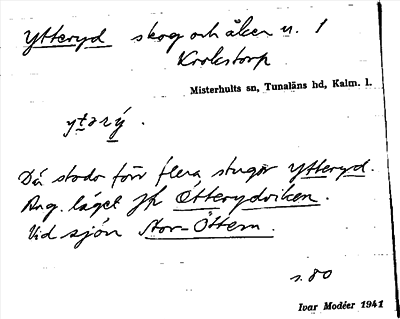 Ytteryd skog och åker u. 1
Krokstorp
Misterhults sn, Tunaläns hd, Kalm. l.
ytərý.
Där stodo förr flera stugor Ytteryd.
Ang. läget jfr Ötterydviken.
Vid sjön Stor-Öttern.
s. 80
Ivar Modéer 1941